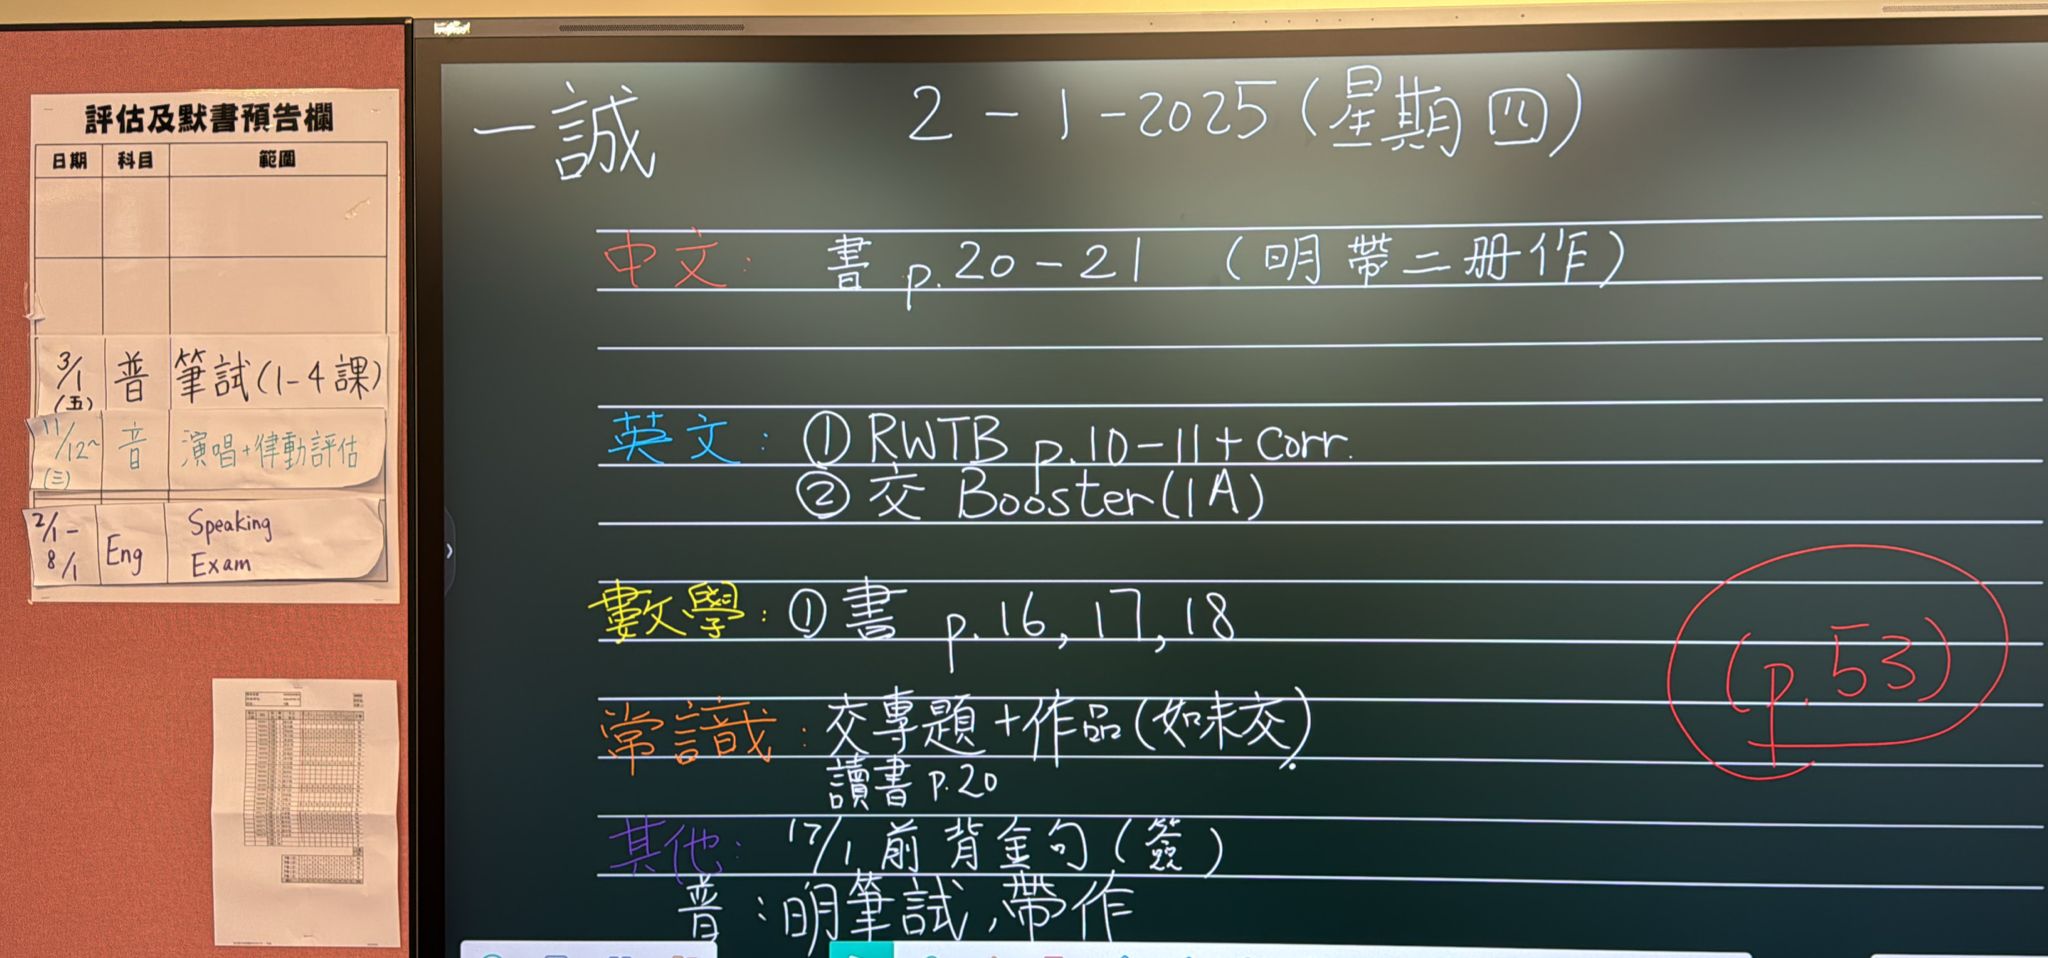 評估及默書預告欄
日期 科目 範圍
3/1 (五) 普 筆試(1-4課)
11/12~ (三) 音 演唱+律動評估
2/1- 8/1 Eng Speaking Exam
一誠 2-1-2025(星期四)
中文: 書 p.20-21 (明帶二冊作)
英文: ① RWTB p.10-11+corr.
② 交 Booster(1A)
數學: ① 書 p.16, 17, 18
(p.53)
常識: 交專題+作品(如未交)
讀書 p.20
其他: 17/1 前背金句(簽)
普:明筆試,帶作